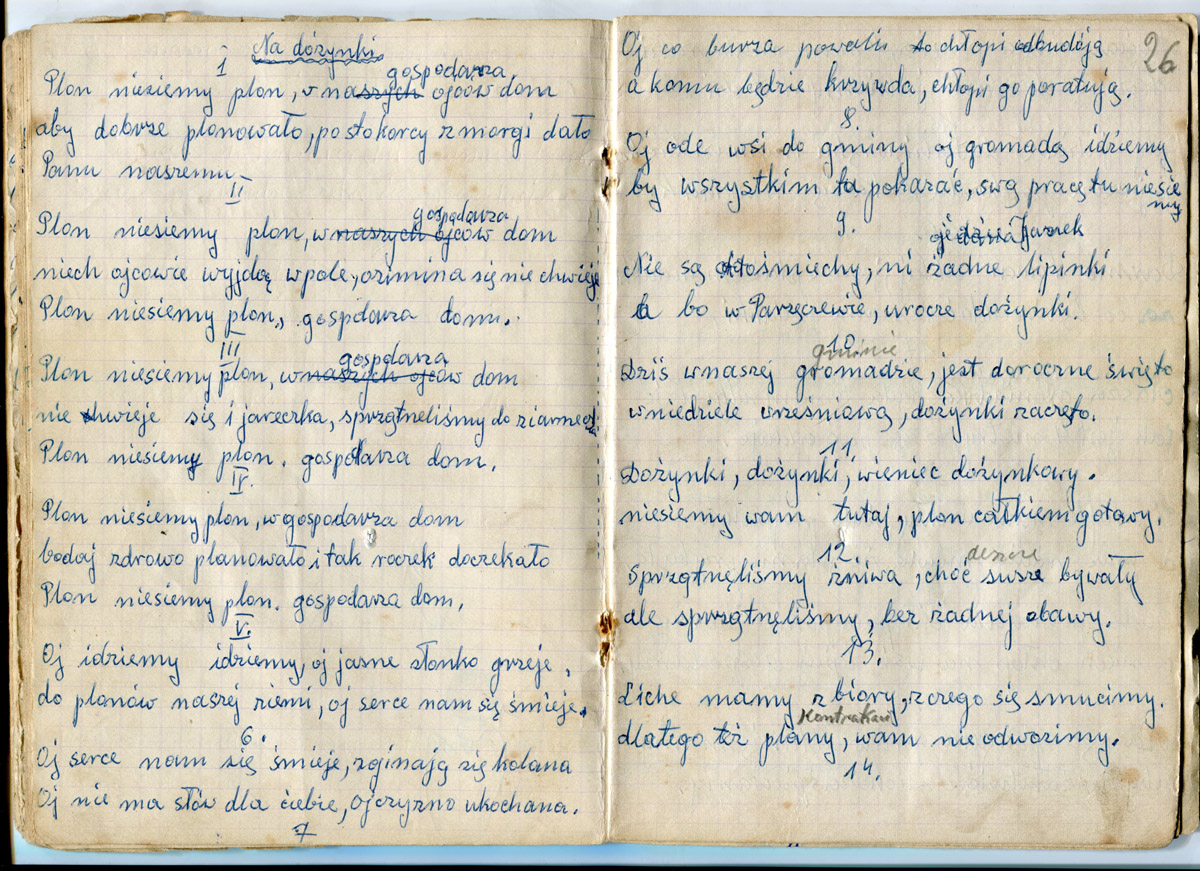 Na dożynki
1
gospodarza
Plon niesiemy plon, w naszych ojców dom
aby dobrze plonowało, po sto korcy z morgi dało
Panu naszemu
II
gospodarza
Plon niesiemy plon, w naszych ojców dom
niech ojcowie wyjdą w pole, ozimina się nie chwieje
Plon niesiemy plon, gospodarza dom.
III
gospodarza
Plon niesiemy plon, w naszych ojców dom
nie chwieje się i jareczka, sprzątneliśmy do ziarneczka
Plon niesiemy plon. gospodarza dom.
IV.
Plon niesiemy plon, w gospodarza dom
bodaj zdrowo planowało, i tak roczek doczekało
Plon niesiemy plon. gospodarza dom.
V.
Oj idziemy idziemy, oj jasne słonko grzeje,
do plonów naszej ziemi, oj serce nam się śmieje.
6.
Oj serce nam się śmieje, zginają się kolana
Oj nie ma słów dla ciebie, ojczyzno ukochana.
7
26
Oj co burza powali to chłopi odbudóją
a komu będzie krzywda, chłopi go poratują.
8.
Oj ode wsi do gminy oj gromadą idziemy
by wszystkim tu pokazać, swą pracę tu niesie
my
9.
Jarek
Nie są to śmiechy, ni żadne lipinki
bo w Parzęczewie, urocze dożynki.
10.
gminie
Dziś w naszej gromadzie, jest doroczne święto
w niedziele wrześniawą, dożynki zaczęto.
11.
Dożynki, dożynki, wieniec dożynkowy.
niesiemy wam tutaj, plon całkiem gotowy.
12.
deszcze
Sprzątnęliśmy żniwa, choć susze bywały
ale sprzątnęliśmy, bez żadnej obawy.
13.
Liche mamy zbiory, z czego się smucimy.
Kontraktów
dlatego też plany, wam nie odwozimy.
14.